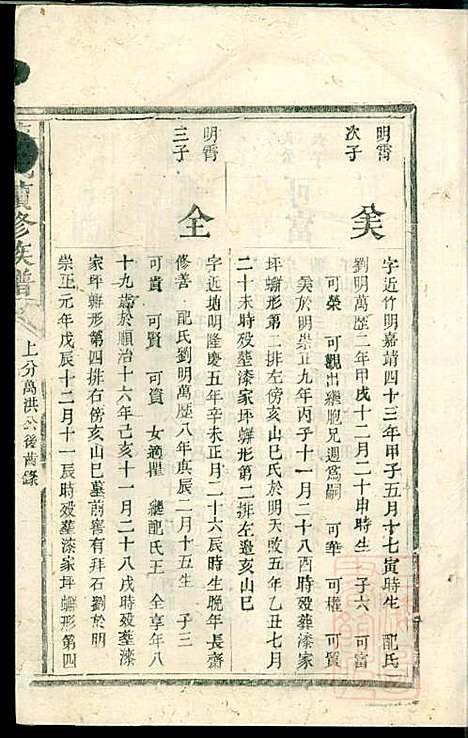 明霄
次子
癸
字近竹明嘉靖四十三年甲子五月十七寅時生 配氏
劉明萬歷二年甲戌十二月二十申時生 子六 可富
可榮 可觀出繼胞兄週為嗣 可華 可權 可貿
癸於明崇正九年丙子十一月二十八酉時歿塟漆家
坪螄形第二排左傍亥山巳氏於明天啟五年乙丑七月
二十未時歿塟漆家坪螄形第二排左邉亥山巳
明霄
三子
全
字近塘明隆慶五年辛未正月二十六辰時生晚年長齋
修善 配氏劉明萬歷八年庚辰二月十五生 子三
可貴 可賢 可資 女適瞿 繼配氏王 全享年八
十九歲於順治十六年己亥十一月二十八戌時歿塟漆
家坪螄形第四排右傍亥山巳墓前窖有拜石劉於明
崇正元年戊辰十二月十一辰時歿塟漆家坪螄形第四
續修族譜
上分萬洪公後齒錄